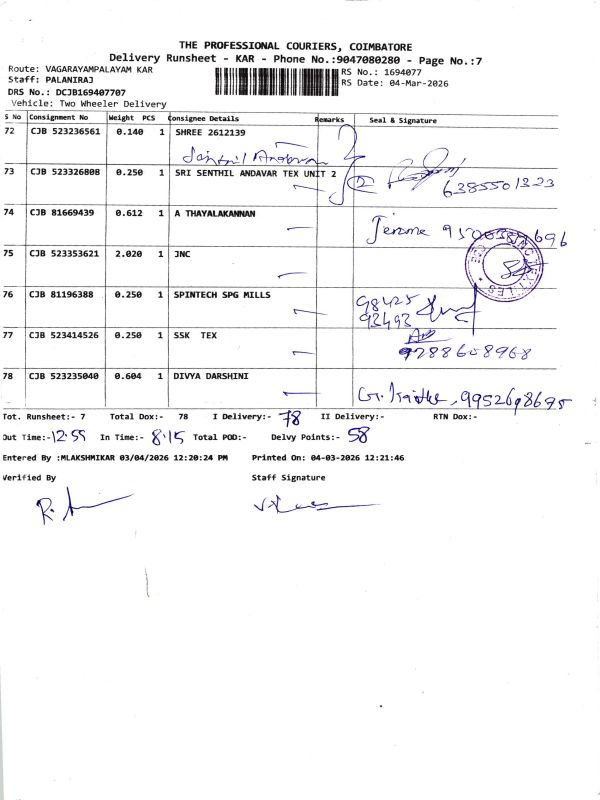 THE PROFESSIONAL COURIERS, COIMBATORE
Delivery Runsheet - KAR - Phone No.:9047080280 - Page No.:7
Route: VAGARAYAMPALAYAM KAR
RS No.: 1694077
Staff: PALANIRAJ
RS Date: 04-Mar-2026
DRS No.: DCJB169407707
Vehicle: Two Wheeler Delivery
S No Consignment No Weight PCS Consignee Details Remarks Seal & Signature
72 CJB 523236561 0.140 1 SHREE 2612139
73 CJB 523326808 0.250 1 SRI SENTHIL ANDAVAR TEX UNIT 2
2 6385501323
74 CJB 81669439 0.612 1 A THAYALAKANNAN
Jerome
75 CJB 523353621 2.020 1 JNC
76 CJB 81196388 0.250 1 SPINTECH SPG MILLS
98425
93493
77 CJB 523414526 0.250 1 SSK TEX
9288608968
78 CJB 523235040 0.604 1 DIVYA DARSHINI
9952698695
Tot. Runsheet:- 7 Total Dox:- 78 I Delivery:- 78 II Delivery:- RTN Dox:-
Out Time:- 12:55 In Time:- 8:15 Total POD:- Delvy Points:- 58
Entered By :MLAKSHMIKAR 03/04/2026 12:20:24 PM Printed On: 04-03-2026 12:21:46
Verified By Staff Signature